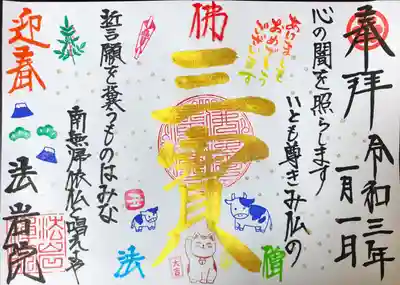 奉拝
令和三年
一月一日
心の闇を照らします
いとも尊きみ仏の
あけまして
おめでとう
ございます
佛
三寳
法
僧
誓願を嚢つものはみな
南無帰依仏と唱えよ
丑
大吉
迎春
法岩院